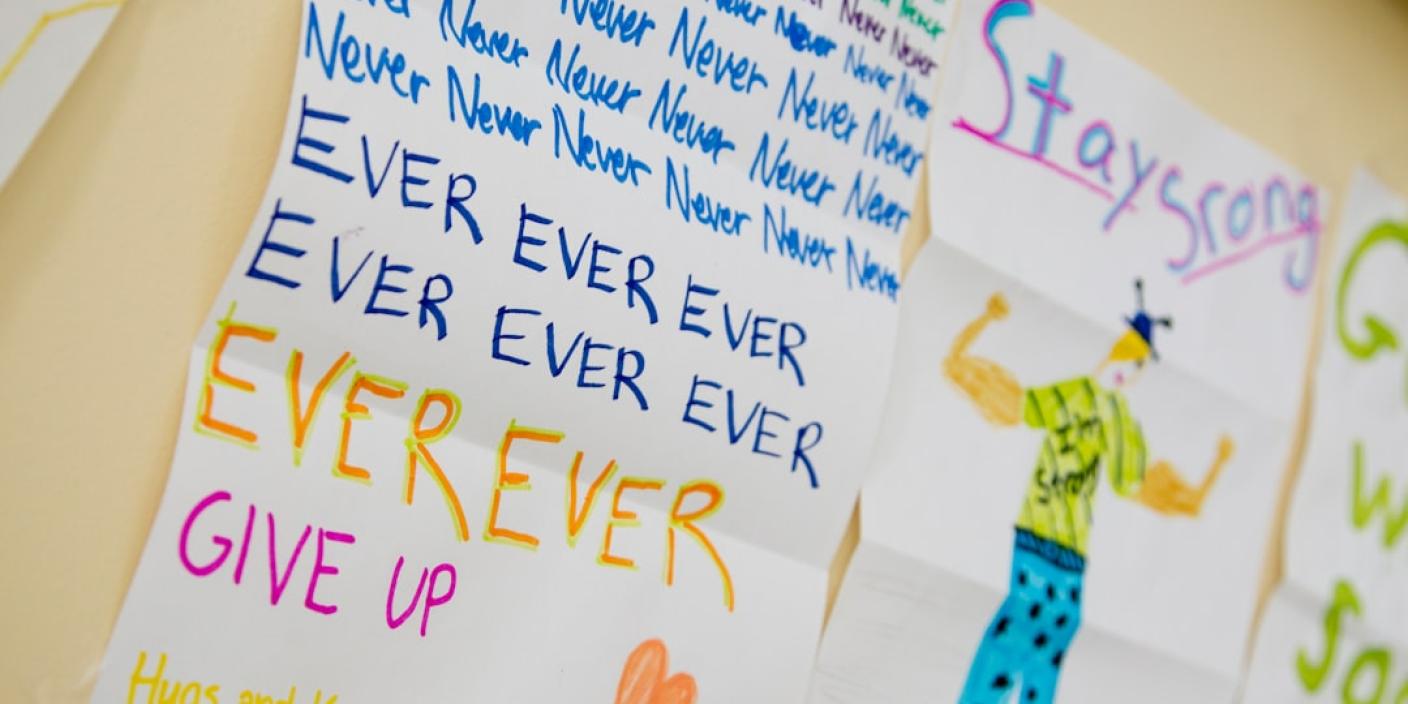 Never
Never Never
Never Never Never Never
Never Never Never Never Never
Never Never Never Never Never
Never Never Never Never Never Never
EVER EVER EVER
EVER EVER EVER
EVER EVER
GIVE UP
Hugs and
Stay
Srong
I'm
strong
G
w
So